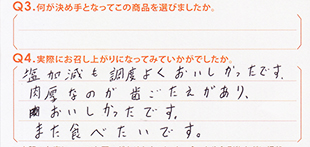 Q3.何が決め手となってこの商品を選びましたか。
Q4.実際にお召し上がりになってみていかがでしたか。
塩加減も調度よくおいしかったです。
肉厚なのが歯ごたえがあり、
おいしかったです。
また食べたいです。